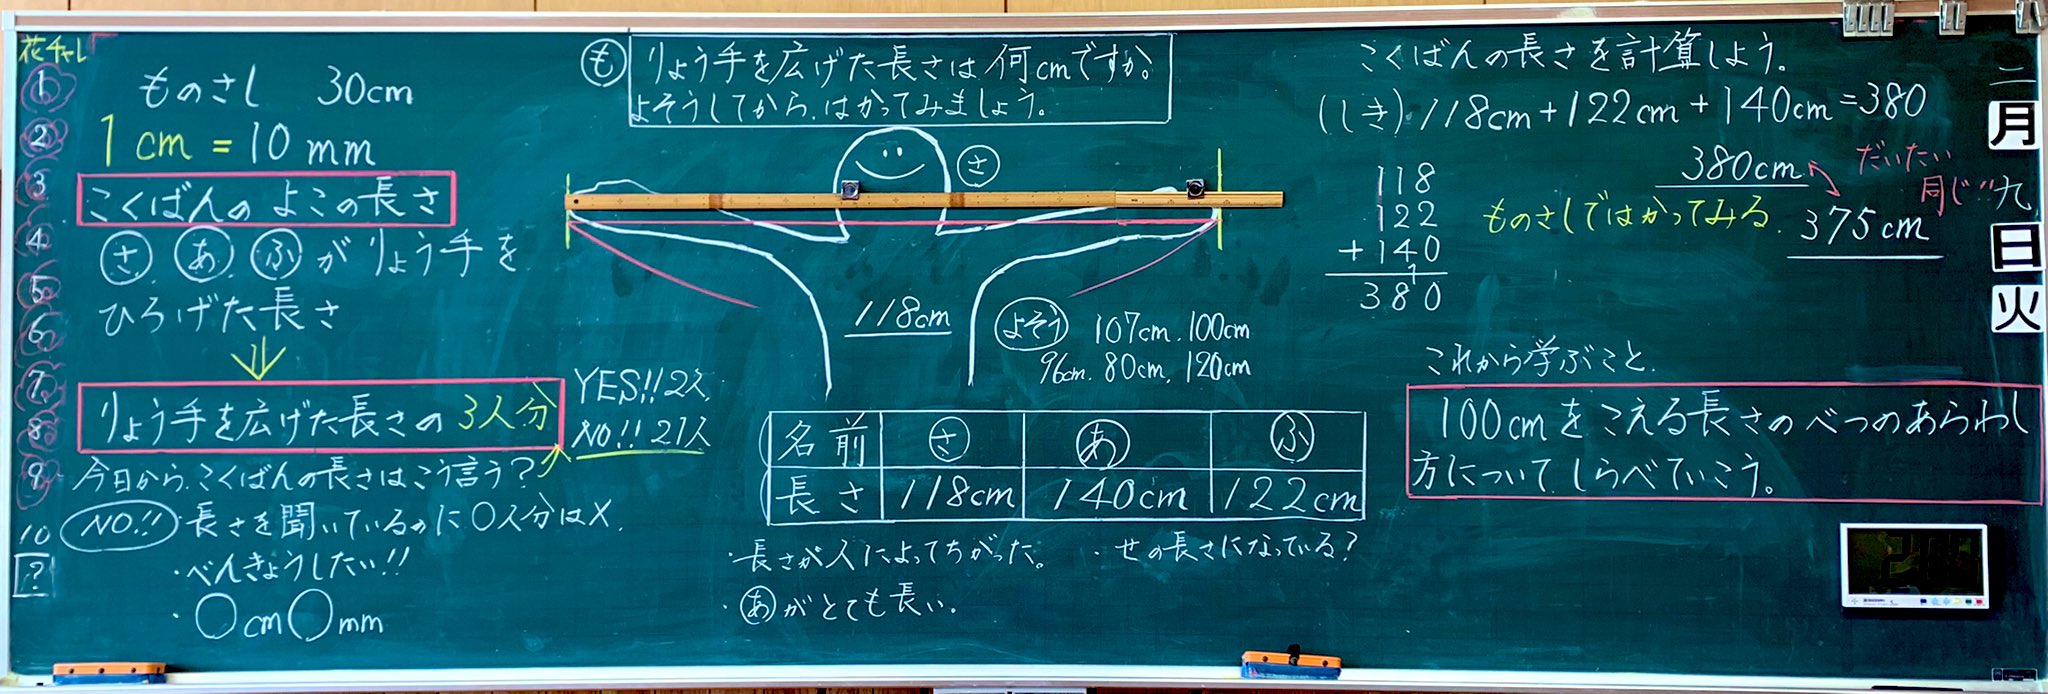 花チャレ
1
2
3
4
5
6
7
8
9
10
?
ものさし 30cm
1cm = 10mm
こくばんの よこの長さ
さ、あ、ふ がりょう手を
ひろげた長さ
⇓
りょう手を広げた長さの 3人分
YES!! 2人
NO!! 21人
今日から、こくばんの長さはこう言う?
NO!! ・長さを聞いているのに〇人分は×.
・べんきょうしたい!!
・〇cm〇mm
も りょう手を広げた長さは何cmですか。
よそうしてから、はかってみましょう。
さ
118cm
よそう 107cm. 100cm
96cm. 80cm. 120cm
名前 さ あ ふ
長さ 118cm 140cm 122cm
・長さが人によってちがった。 ・せの長さになっている?
・あがとても長い。
こくばんの長さを計算しよう。
(しき) 118cm+122cm+140cm=380
118
122
+140
1
380
380cm
だいたい
同じ!!
ものさしではかってみる. 375cm
これから学ぶこと.
100cmをこえる長さのべつのあらわし
方についてしらべていこう。
二
月
九
日
火